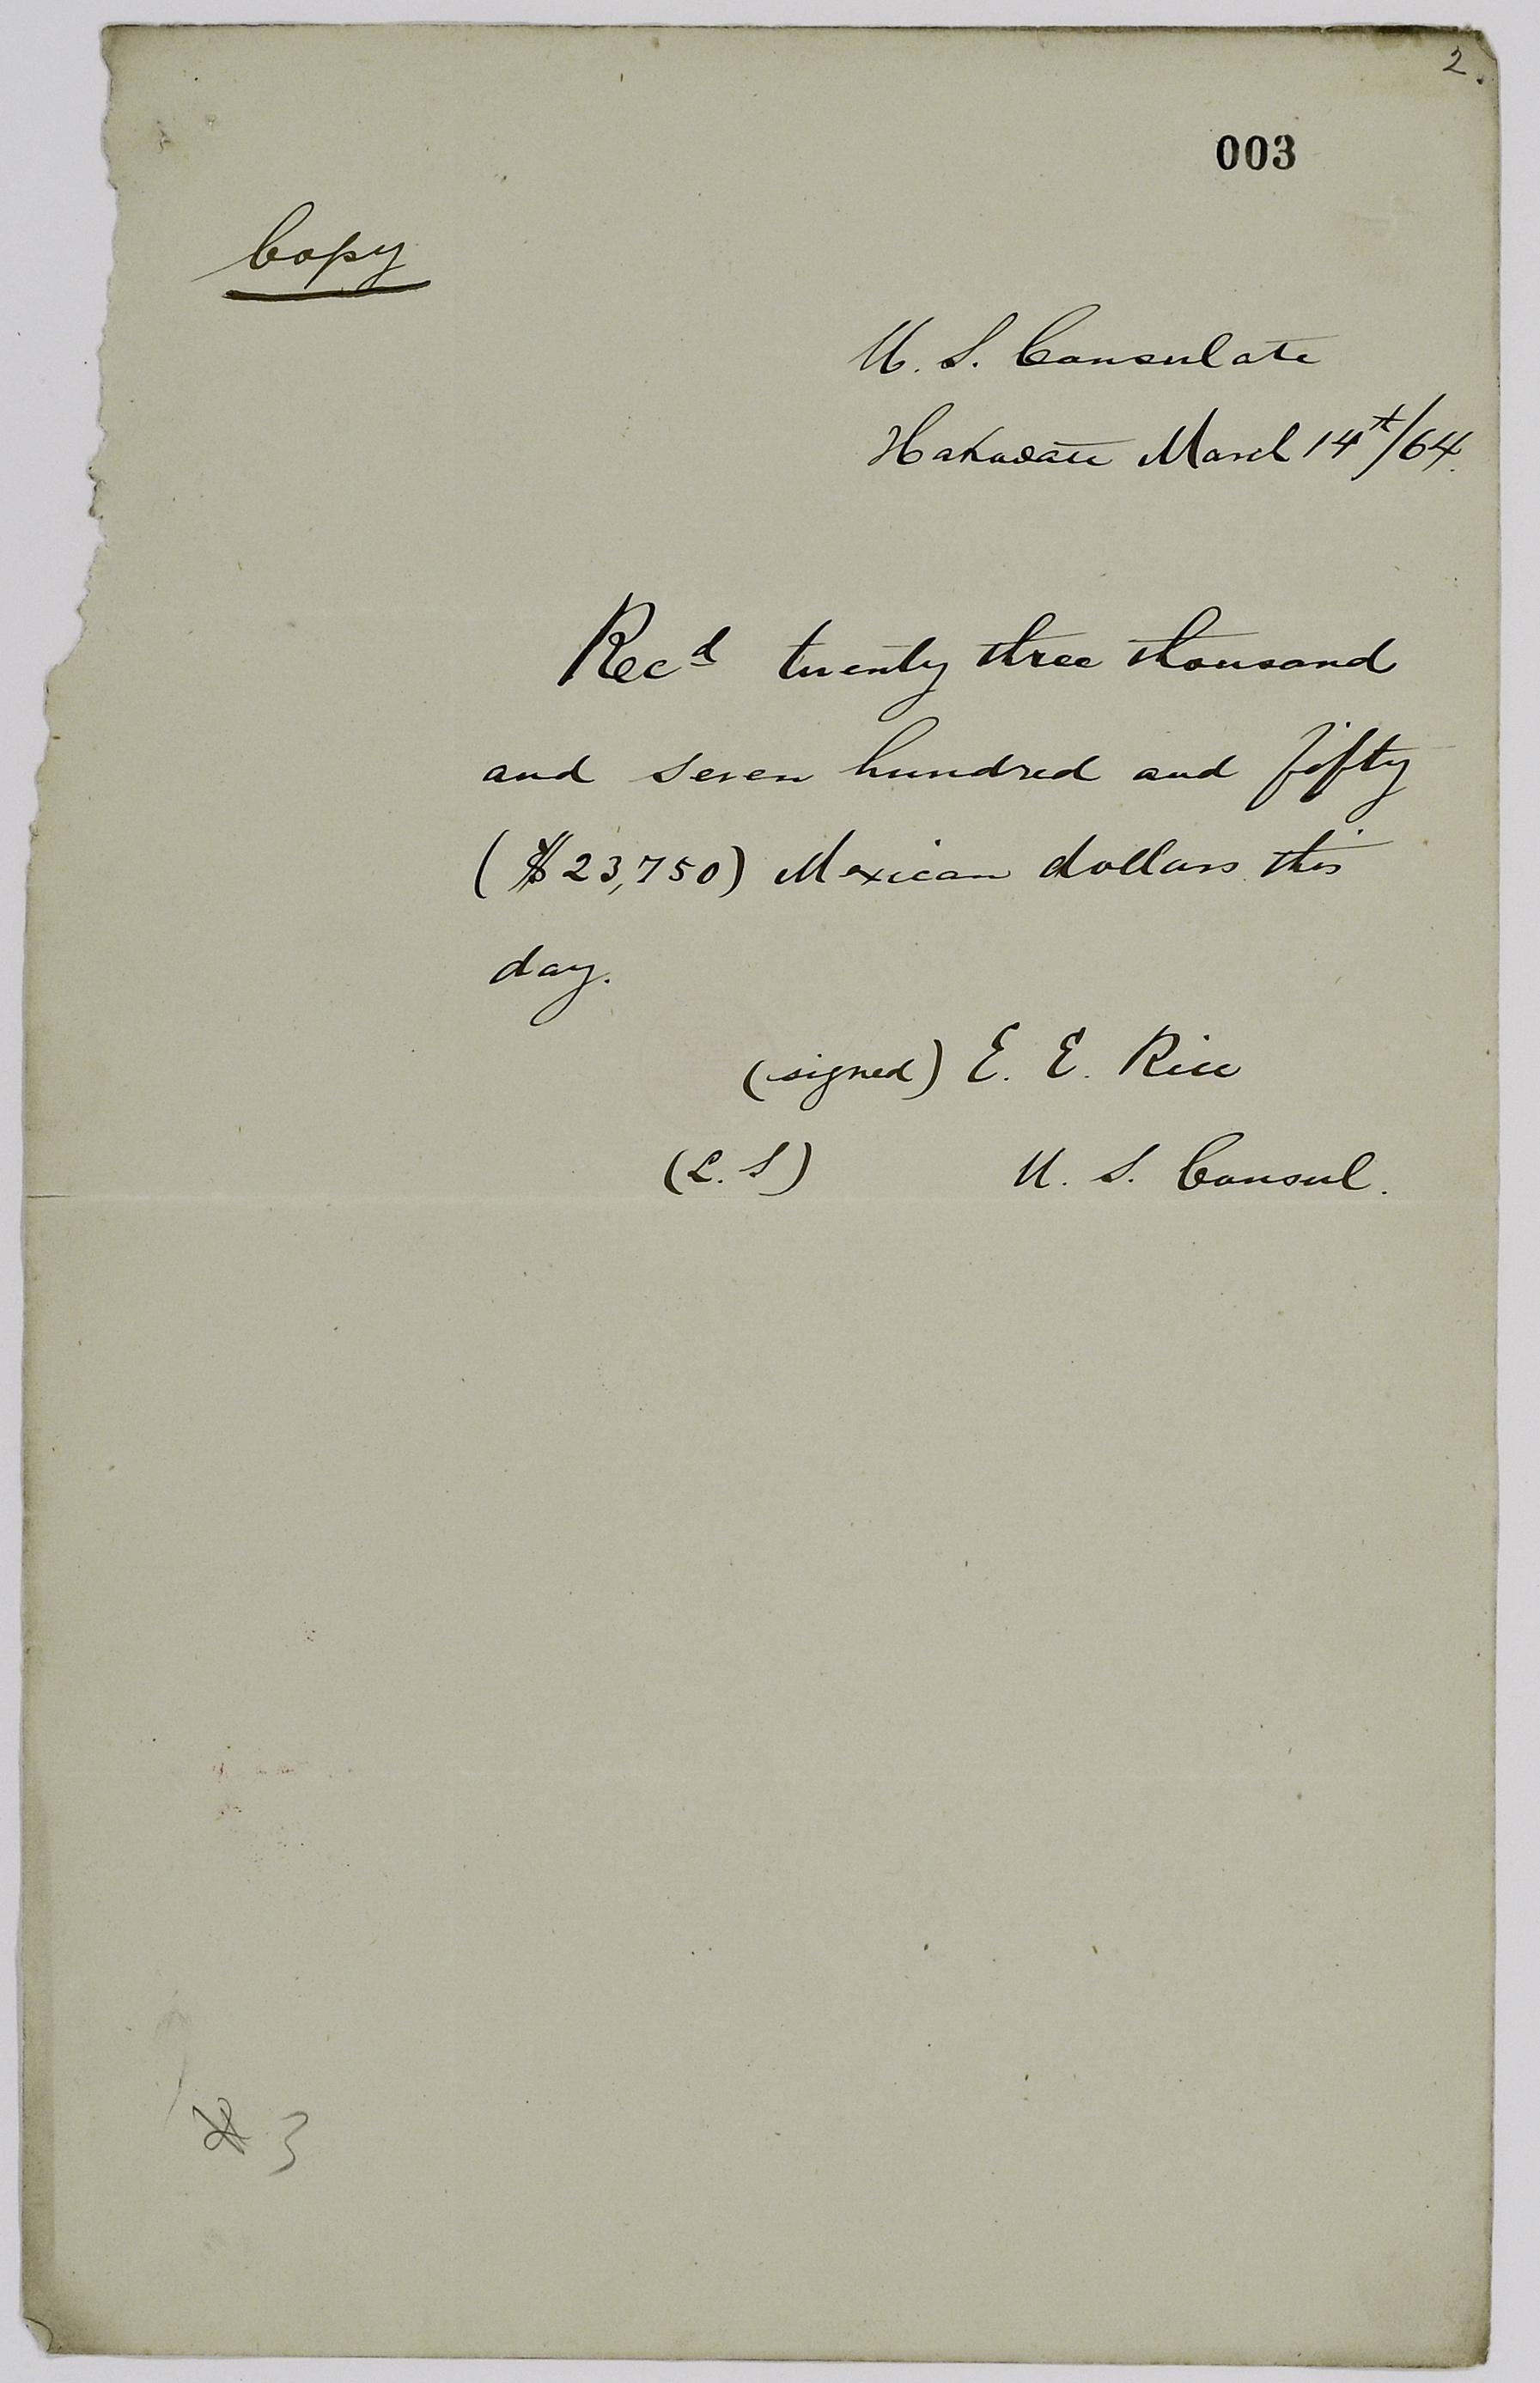 2.
003
Copy
U. S. Consulate
Hakodate March 14th/64.
Recd twenty three thousand
and seven hundred and fifty
($23,750) Mexican dollars this
day.
(signed) E. E. Rice
(L. S) U. S. Consul.
3